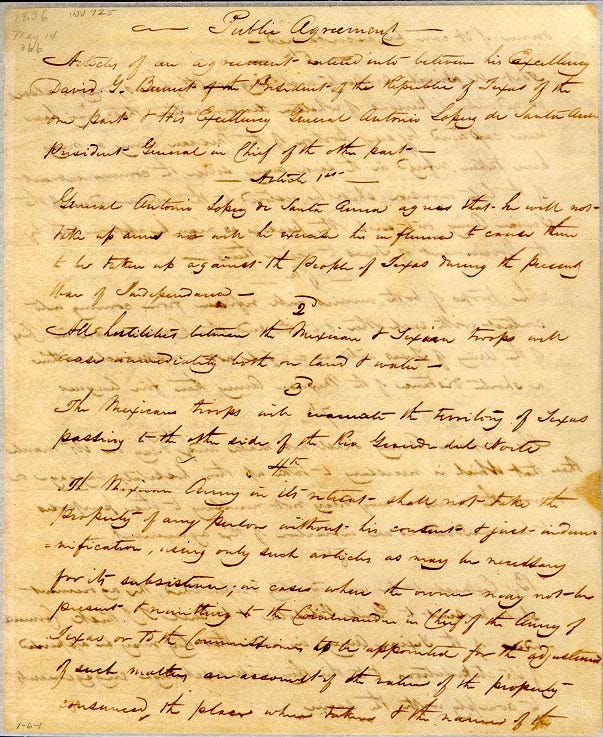 1836
INV 725
May 14
266
Public Agreement
Articles of an agreement entered into between his Excellency
David G. Burnet of the President of the Republic of Texas of the
one part & His Excellency General Antonio Lopez de Santa Anna
President General in Chief of the other part—
— Article 1st —
General Antonio Lopez de Santa Anna agrees that he will not
take up arms nor will he exercise his influence to cause them
to be taken up against the People of Texas during the present
War of Independence—
2d
All hostilities between the Mexican & Texian troops will
cease immediately both on land & water—
3d
The Mexican troops will evacuate the territory of Texas
passing to the other side of the Rio Grande del Norte
4th
The Mexican Army in its retreat shall not take the
property of any person without his consent & just indem
=nification, using only such articles as may be necessary
for its subsistence, in cases where the owner may not be
present & remitting to the Commander in Chief of the Army of
Texas or to the Commissioner to be appointed for the adjustment
of such matters an account of the value of the property
consumed, the place where taken & the name of the
1-6-1